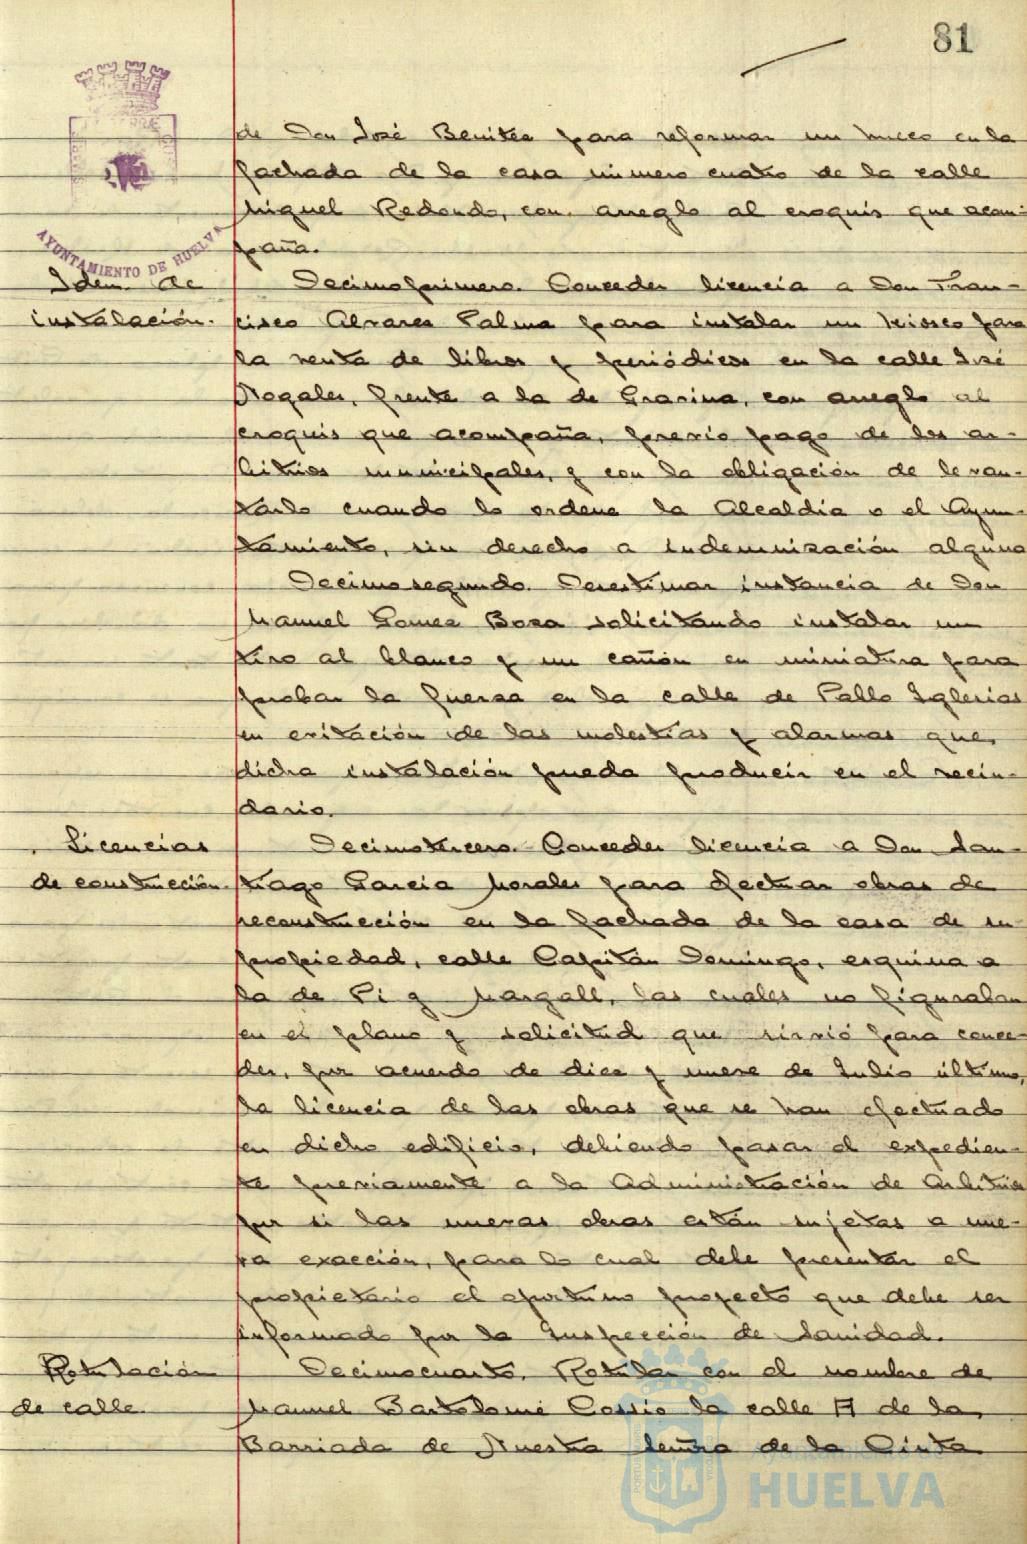 81
de Don José Benitez para reformar un hueco en la
fachada de la casa número cuatro de la calle
Miguel Redondo, con arreglo al croquis que acom-
paña.
AYUNTAMIENTO DE HUELVA
Idem de
instalación.
Decimoprimero. Conceder licencia a Don Fran-
cisco Alvarez Palma para instalar un kiosco para
la venta de libros y periódicos en la calle José
Nogales, frente a la de Gravina, con arreglo al
croquis que acompaña, previo pago de los ar-
bitrios municipales, y con la obligación de levan-
tarlo cuando lo ordene la Alcaldía o el Ayun-
tamiento, sin derecho a indemnización alguna
Decimosegundo. Desestimar instancia de Don
Manuel Gomez Boza solicitando instalar un
tiro al blanco y un cañón en miniatura para
probar la fuerza en la calle de Pablo Iglesias
en evitación de las molestias y alarmas que
dicha instalación pueda producir en el vecin-
dario.
Licencias
de construcción.
Decimotercero. Conceder licencia a Don San-
tiago Garcia Morales para efectuar obras de
reconstrucción en la fachada de la casa de su
propiedad, calle Capitán Domingo, esquina a
la de Pi y Margall, las cuales no figuraban
en el plano y solicitud que sirvió para conce-
der, por acuerdo de diez y nueve de Julio último,
la licencia de las obras que se han efectuado
en dicho edificio, debiendo pasar el expedien-
te previamente a la Administración de Arbitrios
por si las nuevas obras están sujetas a nue-
va exacción, para lo cual debe presentar el
propietario el oportuno proyecto que debe ser
informado por la Inspección de Sanidad.
Rotulación
de calle.
Decimocuarto. Rotular con el nombre de
Manuel Bartolomé Cossio la calle A de la
Barriada de Nuestra Señra de la Cinta
Ayuntamiento de
HUELVA